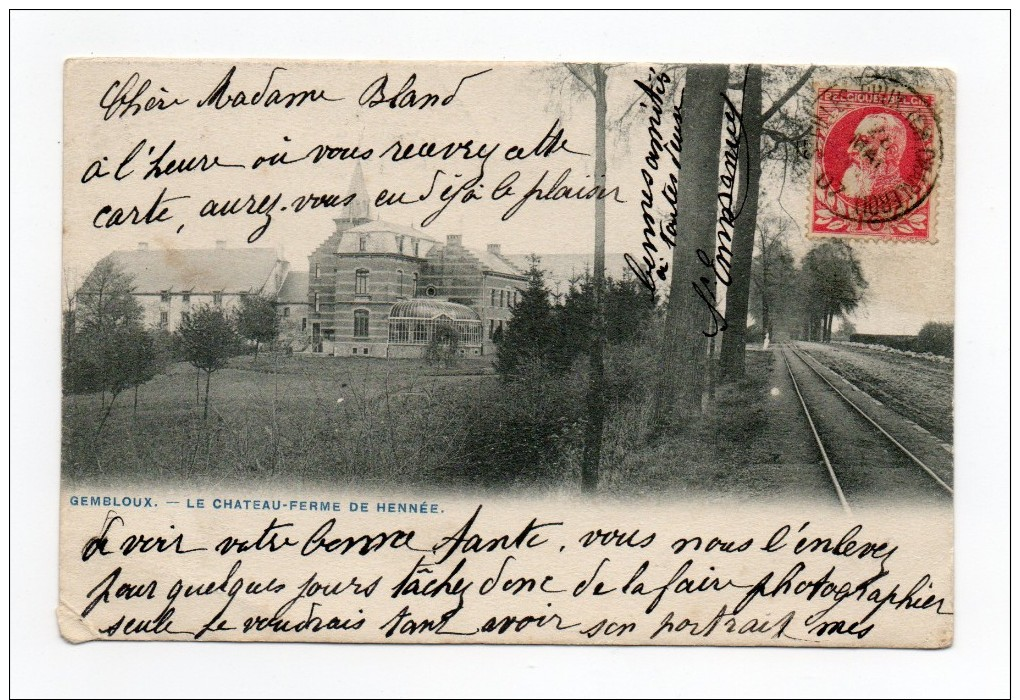 Chère Madame Bland
à l'heure où vous recevrez cette
carte, aurez-vous eu déjà le plaisir
GEMBLOUX. — LE CHATEAU-FERME DE HENNÉE.
de voir votre bonne tante, vous nous l'enlevez
pour quelques jours tâchez donc de la faire photographier
seule Je voudrais tant avoir son portrait mes
à toutes deux
BELGIQUE BELGIË
10